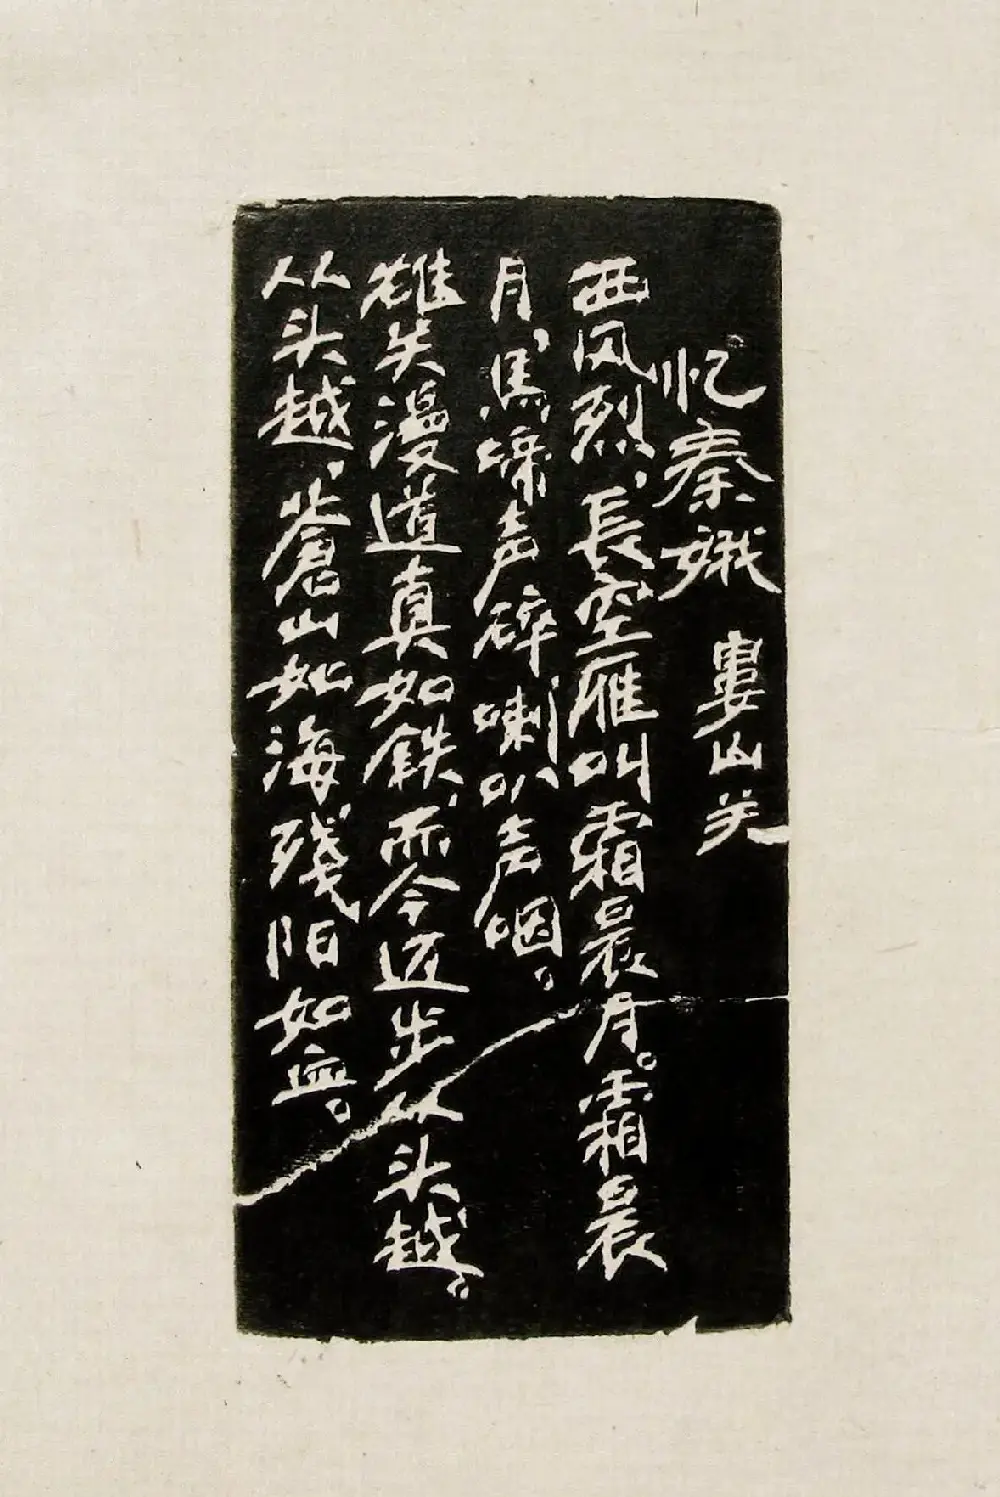 忆秦娥 婁山关
西风烈，長空雁叫霜晨月。霜晨
月，馬蹄声碎喇叭声咽。
雄关漫道真如鉄，而今迈步从头越。
从头越，蒼山如海殘阳如血。